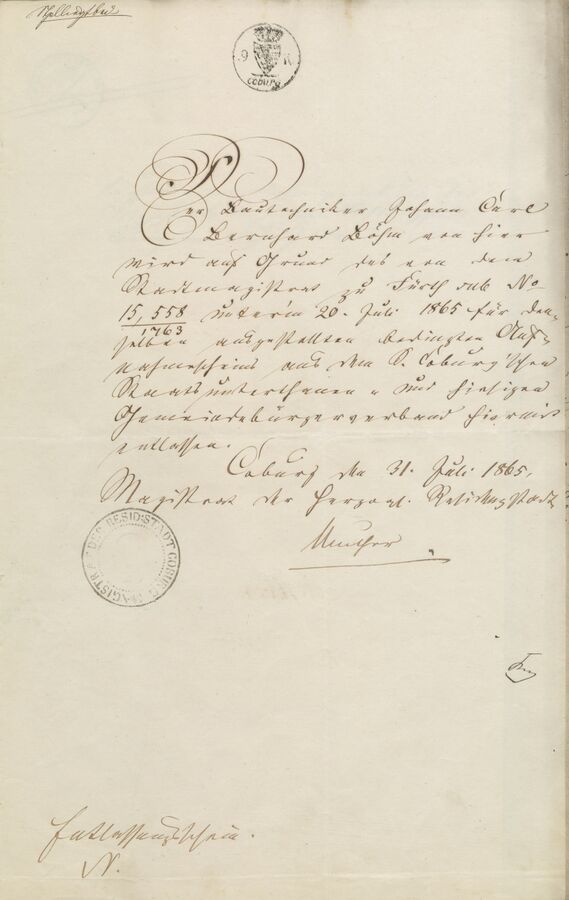 9 K
Coburg
Der Bautechniker Johann Carl
Bernhard Böhm von hier
wird auf Grund des von dem
Stadtmagistrat zu Fürth sub No
15,558
1763
unterm 20. Juli 1865 für den=
selben ausgestellten bedingten Auf=
nahmescheins aus dem S. Coburg'schen
Staatsunterthanen- und hiesigen
Gemeindebürgerverband hiermit
entlassen.
Coburg den 31. Juli 1865.
Magistrat der Herzogl. Residenzstadt
Muther
MAGISTRAT DER RESID: STADT COBURG
Entlassungsschein.
N.